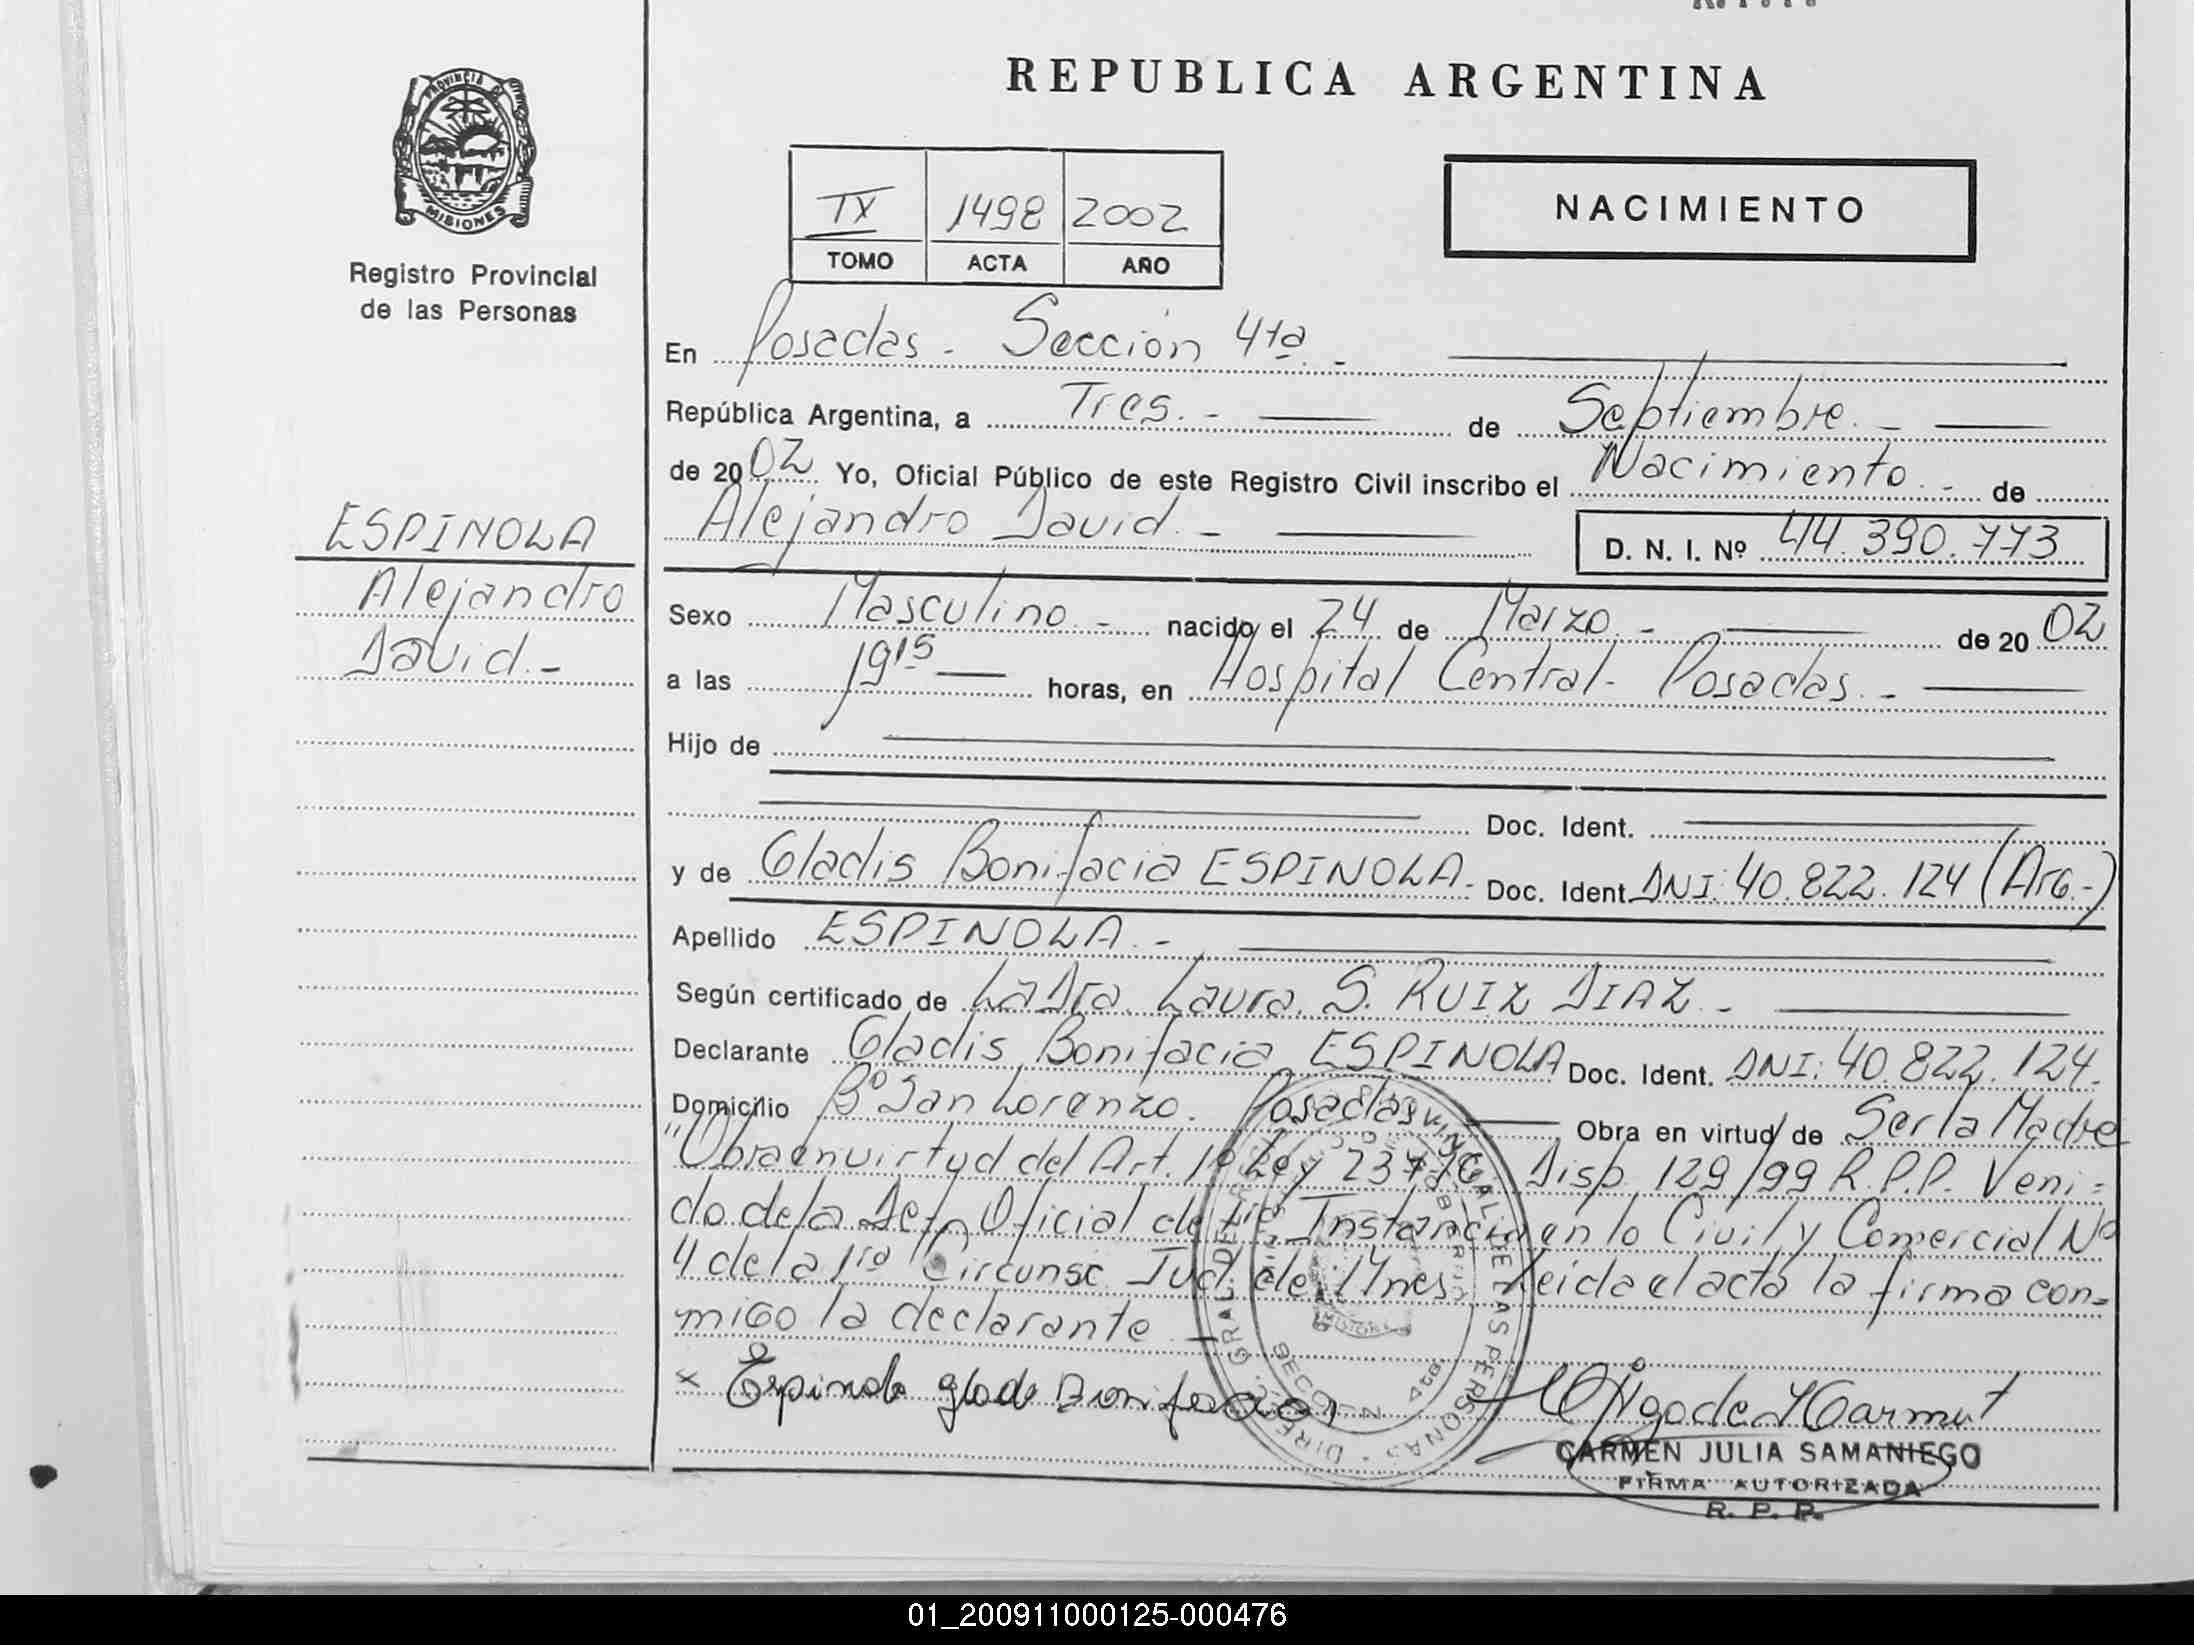 REPUBLICA ARGENTINA
PROVINCIA DE
MISIONES
Registro Provincial
de las Personas
IX 1498 2002
TOMO ACTA AÑO
NACIMIENTO
ESPINOLA
Alejandro
David.-
En Posadas - Sección 4ta. -
República Argentina, a Tres. - de Septiembre. -
de 2002 Yo, Oficial Público de este Registro Civil inscribo el Nacimiento. - de
Alejandro David. - D. N. I. Nº 44.390.773
Sexo Masculino. - nacido el 24 de Marzo. - de 2002
a las 19 15 horas, en Hospital Central - Posadas. -
Hijo de
Doc. Ident.
y de Gladis Bonifacia ESPINOLA. - Doc. Ident. DNI: 40.822.124 (Arg.-)
Apellido ESPINOLA. -
Según certificado de La Dra. Laura. S. RUIZ DIAZ. -
Declarante Gladis Bonifacia ESPINOLA Doc. Ident. DNI: 40.822.124.
Domicilio Bº San Lorenzo. Posadas Obra en virtud de Ser la Madre
"Obra en virtud del Art. 1º Ley Disp. 129/99 R.P.P. Veni=
do de la Def. Oficial de 1ra Instancia en lo Civil y Comercial Nº
4 de la 1ra Circunsc. Jud. de Mnes. Leida el acta la firma con=
migo la declarante
x Espinola Bonifacia
CARMEN JULIA SAMANIEGO
FIRMA AUTORIZADA
R. P. P.
01_200911000125-000476